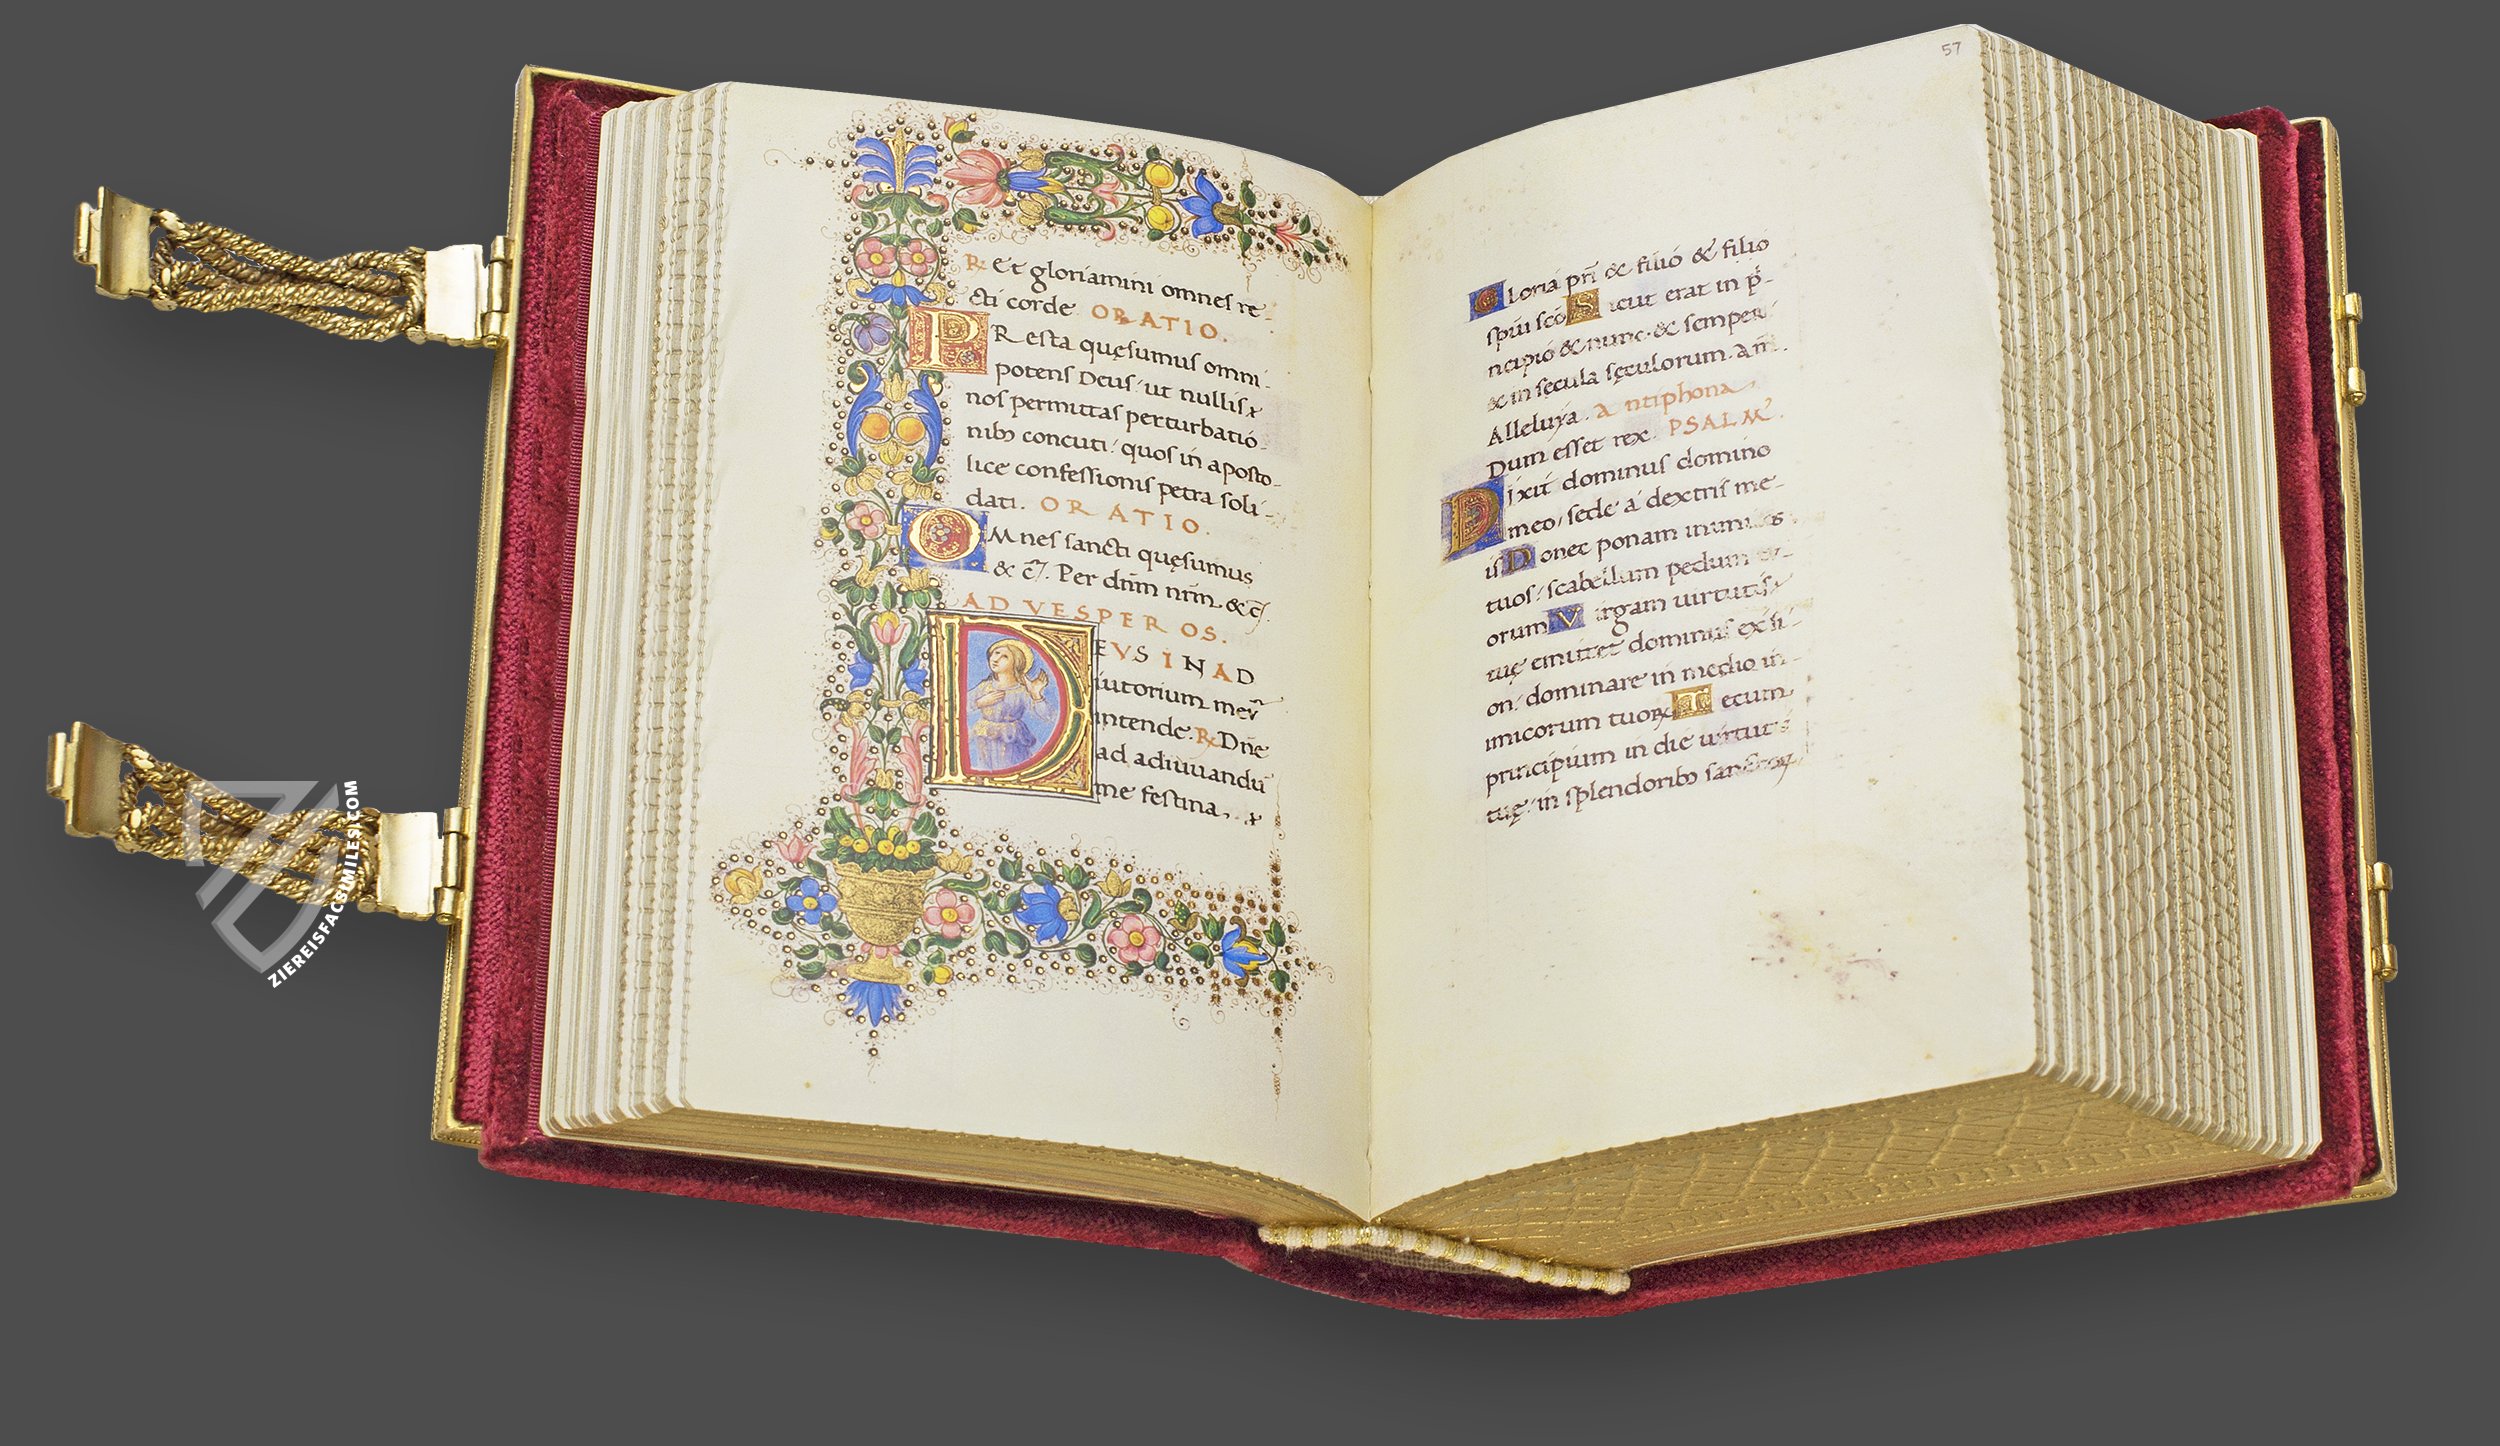 ℟ Et gloriamini omnes re-
cti corde. ORATIO.
PResta quęsumus omni-
potens Deus, ut nullis
nos permittas perturbatió-
nib; concuti: quos in aposto-
lice confessionis petra soli-
dati. ORATIO.
OMnes sancti quęsumus
& c̃. Per dñm nr̃m. &c̃.
AD VESPEROS.
DEVS IN AD
iutorium meũ
intende. ℟ Dñe
ad adiuuandũ
me festina.
57
Gloria pr̃i & filió & filió
spũi scó Sicut erat in p̃-
ncipió & nunc. & semper
& in secula sęculorum. Am̃.
Alleluya. Antiphona
Dum esset rex. PSALM.
Dixit dominus domino
meo, sede a dextris me-
is Donec ponam inimicos
tuos, scabellum pedum tu-
orum Virgam uirtutis
tuę emittet dominus ex si-
on, dominare in medio in-
imicorum tuoꝝ Tecum
principium in die uirtutis
tuę, in splendorib; sanctoꝝ
ZIEREISFACSIMILES.COM